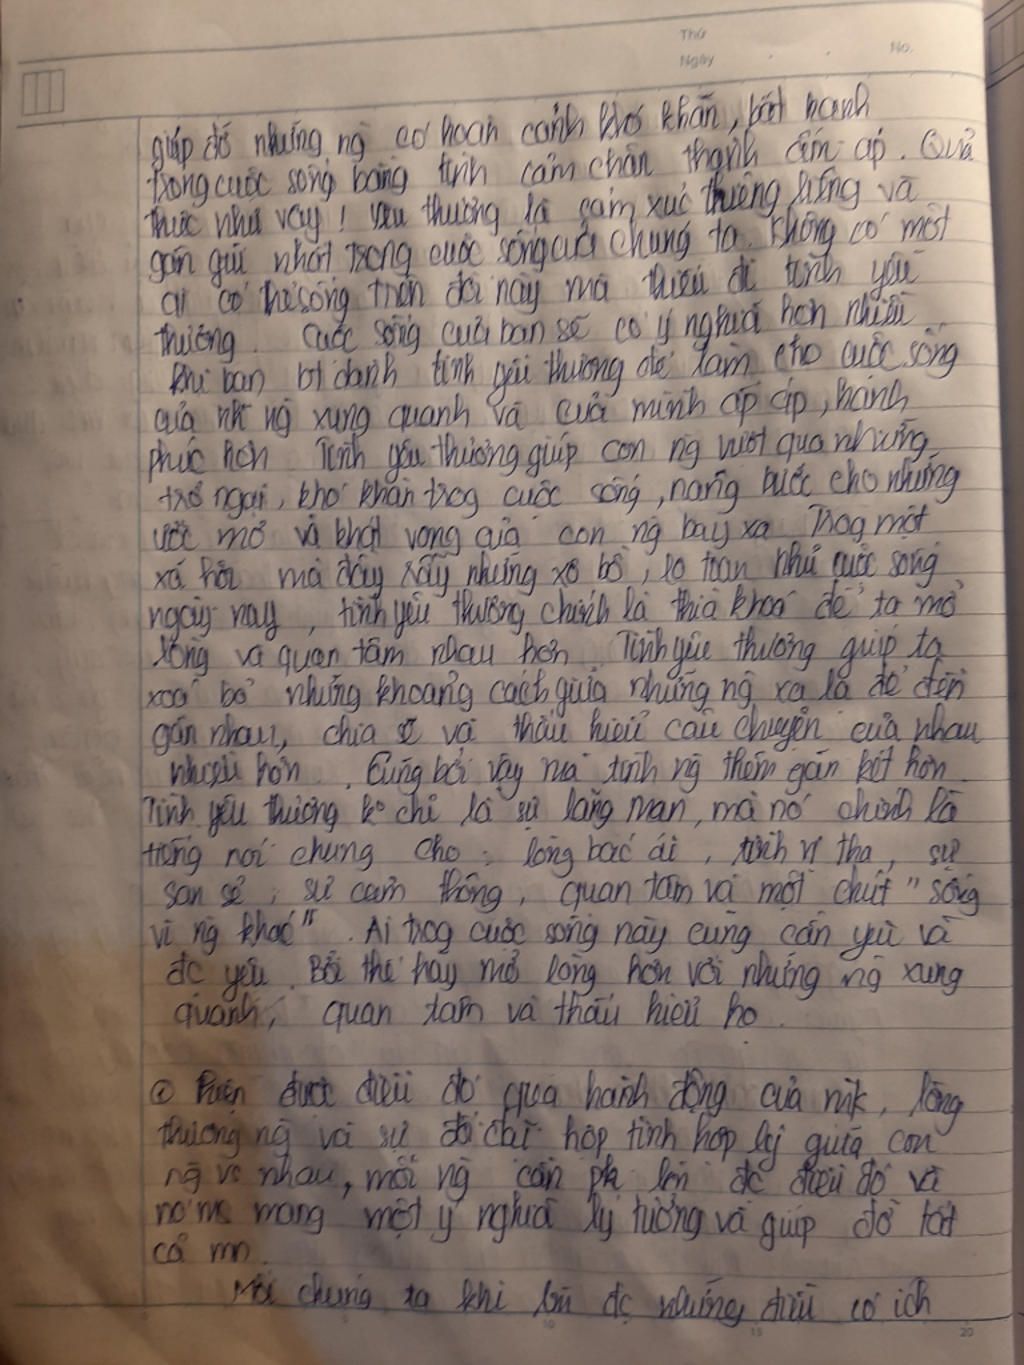 Thứ
Ngày
No.
giúp đỡ những ng có hoàn cảnh khó khăn, bất hạnh
trong cuộc sống bằng tình cảm chân thành ấm áp. Quả
thực như vậy! yêu thương là cảm xúc thiêng liêng và
gần gũi nhất trong cuộc sống của chúng ta. Không có một
ai có thể sống trên đời này mà thiếu đi tình yêu
thương. Cuộc sống của bạn sẽ có ý nghĩa hơn nhiều
khi bạn bt dành tình yêu thương để làm cho cuộc sống
của nh ng xung quanh và của mình ấp áp, hạnh
phúc hơn. Tình yêu thương giúp con ng vượt qua những
trở ngại, khó khăn trog cuộc sống, nâng bước cho những
ước mơ và khát vọng của con ng bay xa. Trog một
xã hội mà đầy rẫy những xô bồ, lo toan như cuộc sống
ngày nay, tình yêu thương chính là thìa khoá để ta mở
lòng và quan tâm nhau hơn. Tình yêu thương giúp ta
xoá bỏ những khoảng cách giữa những ng xa lạ để đến
gần nhau, chia sẻ và thấu hiểu câu chuyện của nhau
nhiều hơn. Cũng bởi vậy mà tình ng thêm gắn kết hơn.
Tình yêu thương ko chỉ là sự lãng mạn, mà nó chính là
tiếng nói chung cho: lòng bác ái, tính vị tha, sự
san sẻ, sự cảm thông, quan tâm và một chút "sống
vì ng khác". Ai trog cuộc sống này cũng cần yêu và
đc yêu. Bởi thế hãy mở lòng hơn với những ng xung
quanh, quan tâm và thấu hiểu họ.
được điều đó qua hành động của nik, lòng
thương ng và sự đối hợp tình hợp lý giữa con
ng vs nhau, mỗi ng cần lên đc điều đó và
nó mang một ý nghĩa lý tưởng và giúp đỡ tất
cả mn.
Mỗi chúng ta khi đc những điều có ích
10
15
20